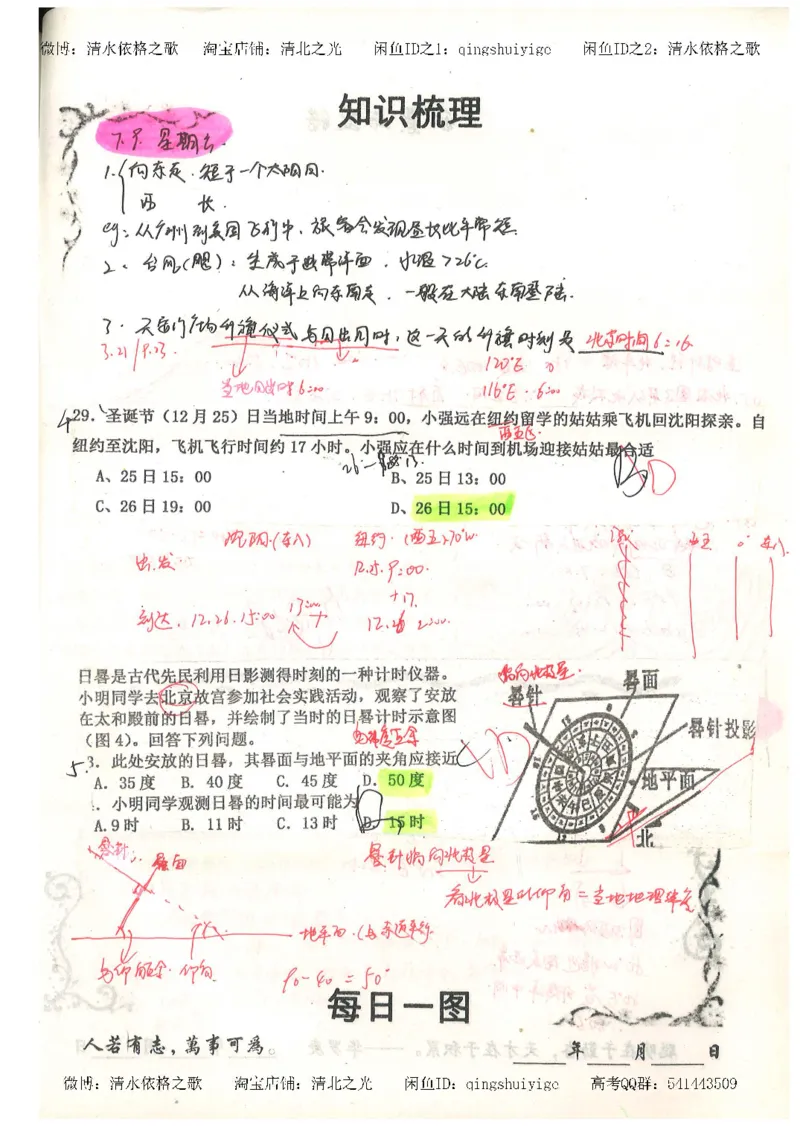 微博：清水依格之歌 淘宝店铺：清北之光 闲鱼ID之1：qingshuiyige 闲鱼ID之2：清水依格之歌
知识梳理
7.8. 星期六.
1.{向东走.短于一个太阳日.
西 长.
eg：从广州到美国飞机中，旅客会发现昼夜比平常短.
2. 台风(飓)：生成于热带洋面，水温>26℃.
从海洋上向东南走，一般在大陆东南登陆.
3. 天安门广场升旗仪式与日出同时，这一天的升旗时刻是 北京时间6:16
3.21/9.23.
当地日出时6:00
120°E
116°E. 6:00
4 29．圣诞节（12月25）日当地时间上午9：00，小强远在纽约留学的姑姑乘飞机回沈阳探亲。自
西五区.
纽约至沈阳，飞机飞行时间约17小时。小强应在什么时间到机场迎接姑姑最合适
D
A、25日15：00 B、25日13：00
C、26日19：00 D、26日15：00
沈阳.(东八) 纽约.(西五)70°W.
西五 0° 东八.
出发. 12.25.9:00.
+17.
到达. 12.26.15:00 13:00 12.26 2:00.
日晷是古代先民利用日影测得时刻的一种计时仪器。
小明同学去北京故宫参加社会实践活动，观察了安放
在太和殿前的日晷，并绘制了当时的日晷计时示意图
（图4）。回答下列问题。
与纬度互余
5. 3．此处安放的日晷，其晷面与地平面的夹角应接近
A．35度 B．40度 C．45度 D．50度
．小明同学观测日晷的时间最可能为
A.9时 B．11时 C．13时 D．15时
指向北极星.
晷针
晷面
晷针投影
地平面
北
D
晷针.
晷面
晷针指向北极星
看北极星的仰角=当地地理纬度
地平面.(与赤道平行.
与仰角互余. 仰角.
90-40=50°
每日一图
人若有志，萬事可為
年 月 日
微博：清水依格之歌 淘宝店铺：清北之光 闲鱼ID：qingshuiyige 高考QQ群：541443509